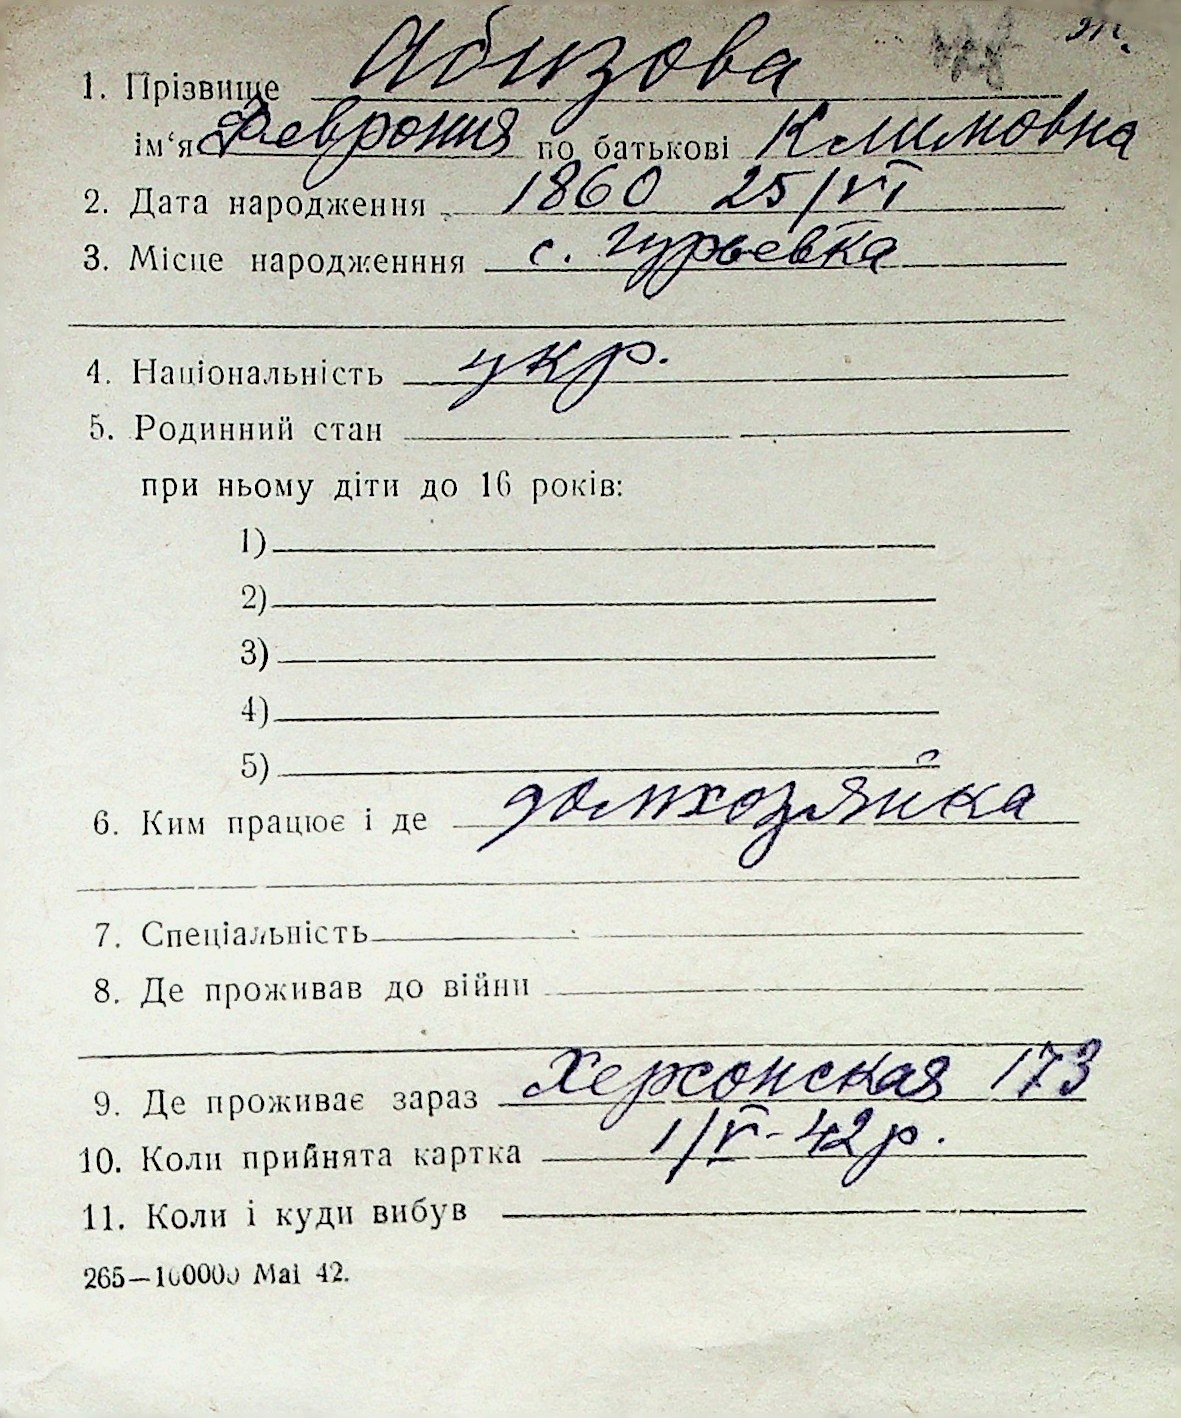 т.
1. Прізвище Абизова
ім'я Феврония по батькові Климовна
2. Дата народження 1860 25/VI
3. Місце народженння с. Гурьевка
4. Національність укр.
5. Родинний стан
при ньому діти до 16 років:
1)
2)
3)
4)
5)
6. Ким працює і де домхозяйка
7. Спеціальність
8. Де проживав до війни
9. Де проживає зараз Херсонская 173
10. Коли прийнята картка 1/V-42р.
11. Коли і куди вибув
265—100000 Mai 42.